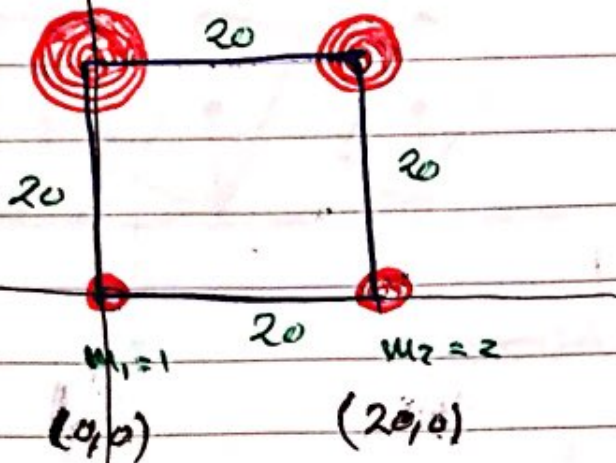 20
20 20
20
m₁=1 m₂=2
(0,0) (20,0)